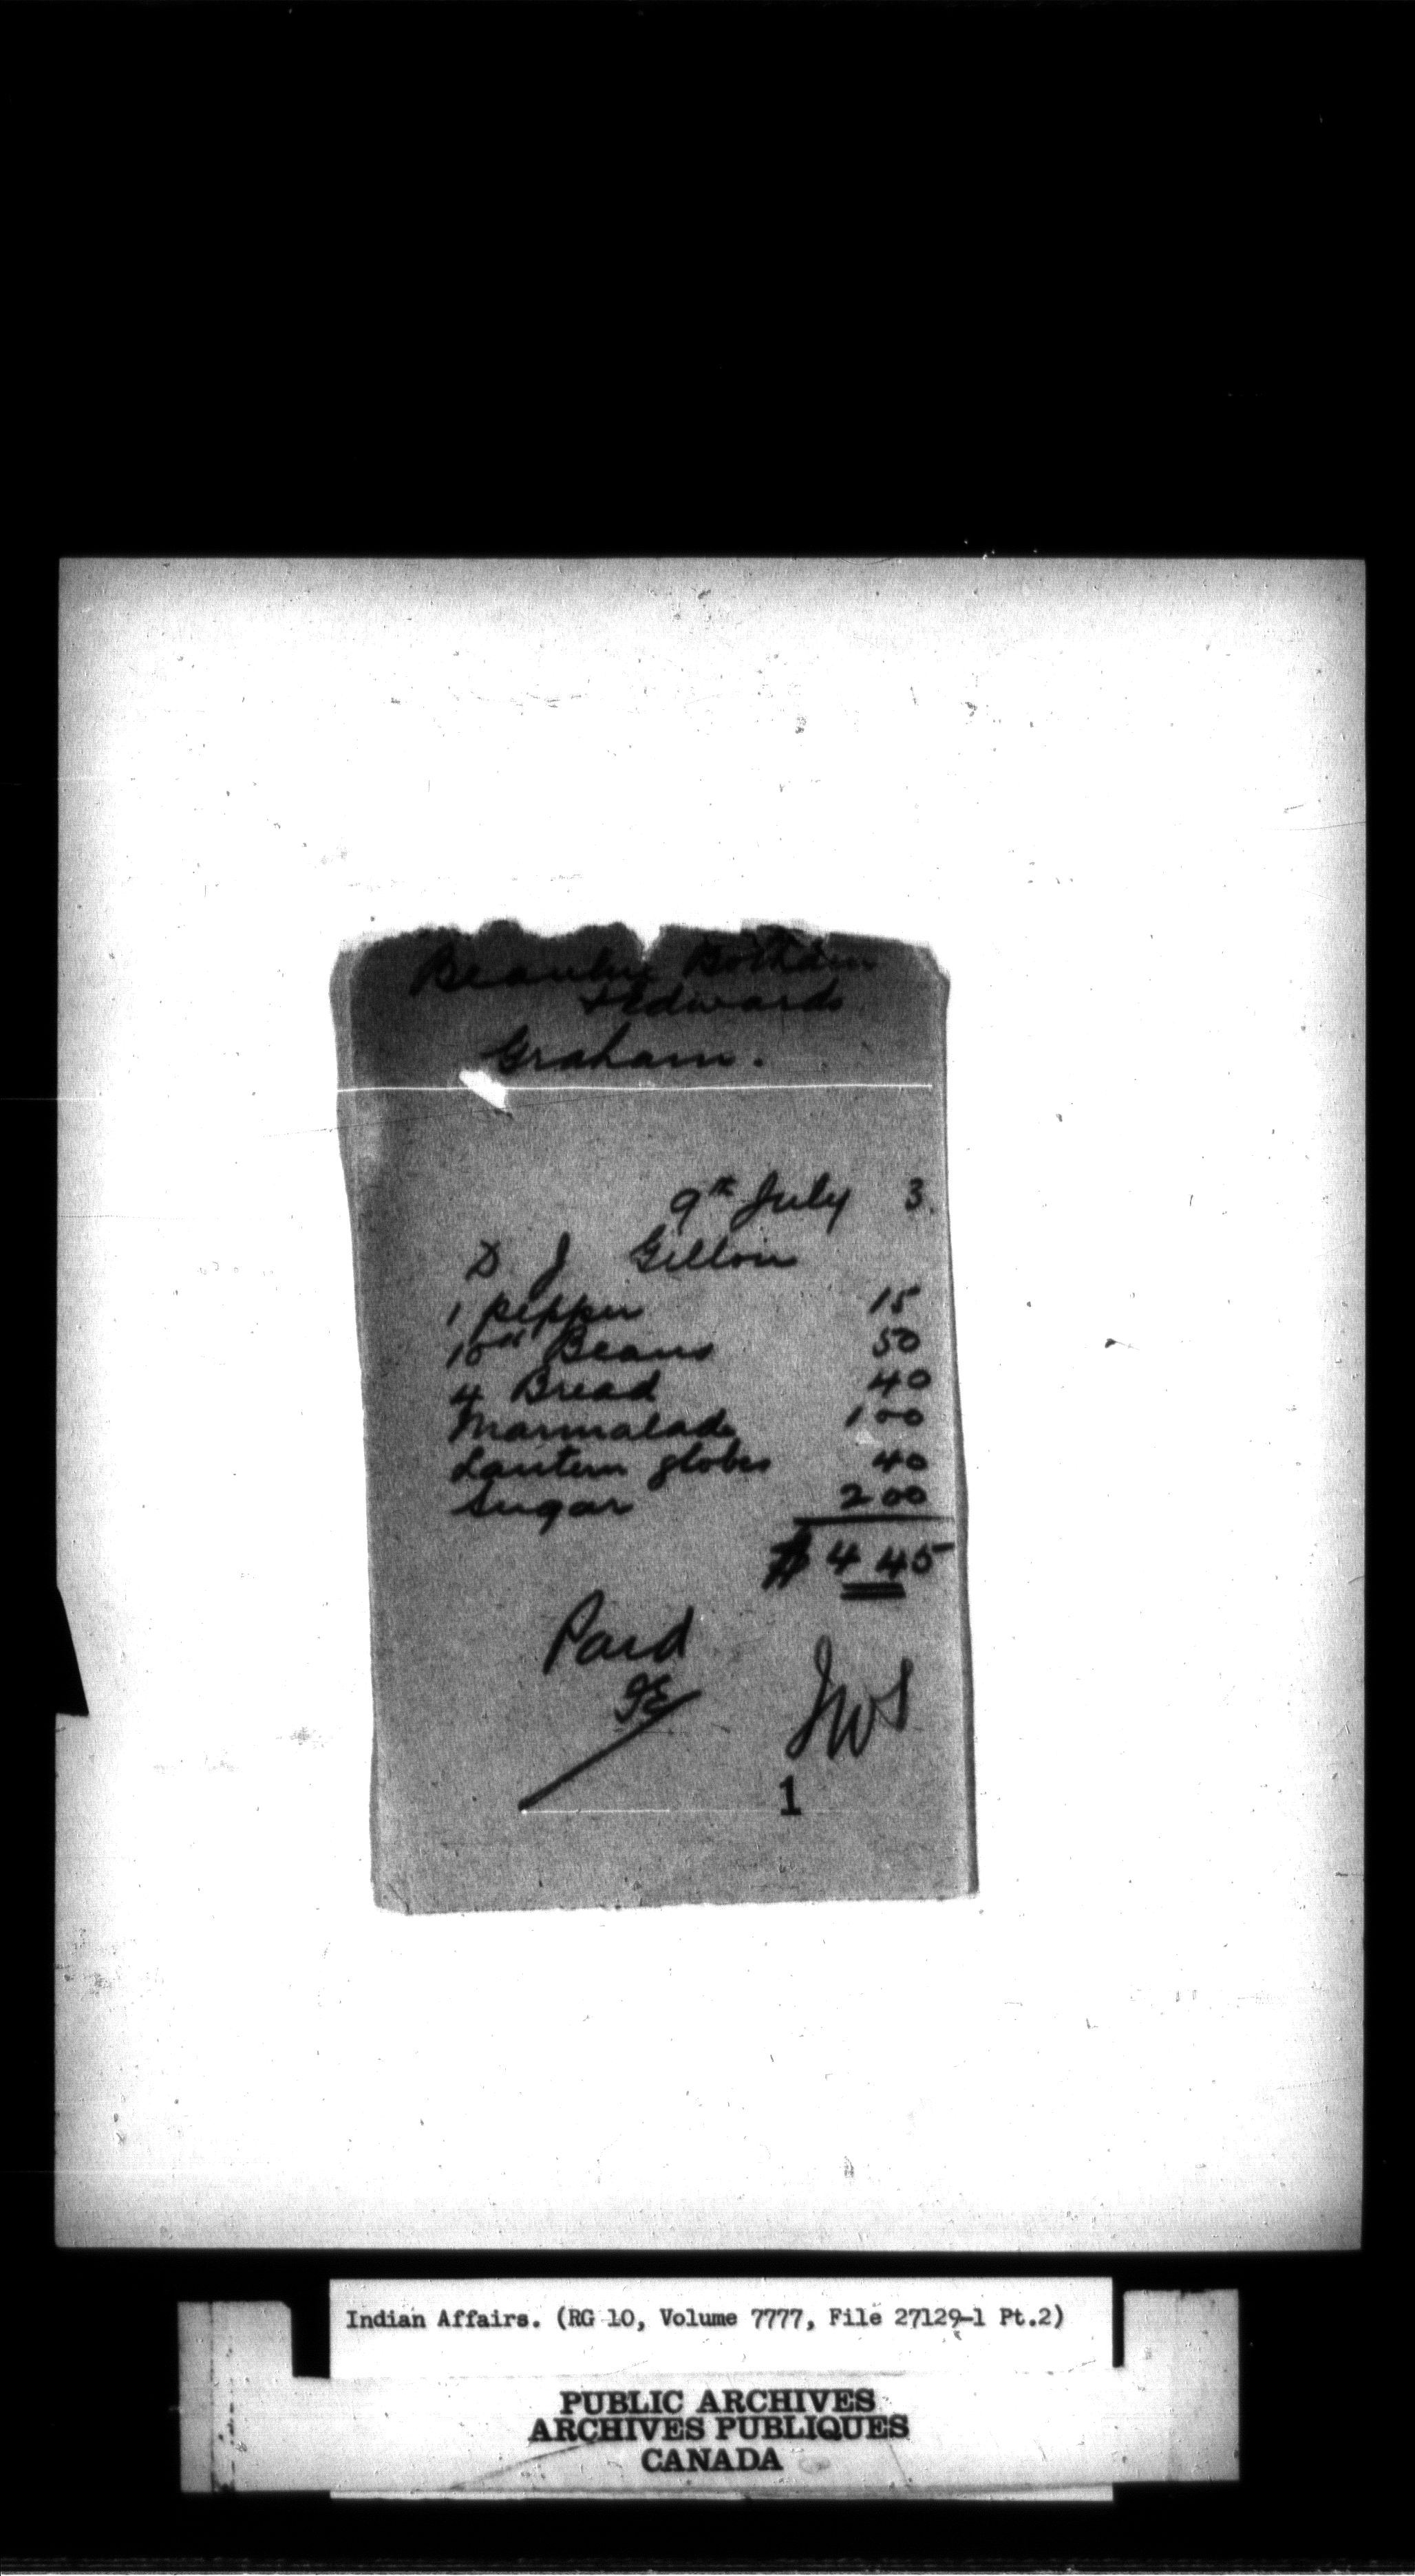 Botham
& Edwards
Graham.
9th July 3
D J Gillon
1 pepper 15
10# Beans 50
4 Bread 40
Marmalade 100
Lantern globes 40
Sugar 200
$ 4 45
Paid
JWS
1
Indian Affairs. (RG 10, Volume 7777, File 27129-1 Pt.2)
PUBLIC ARCHIVES
ARCHIVES PUBLIQUES
CANADA